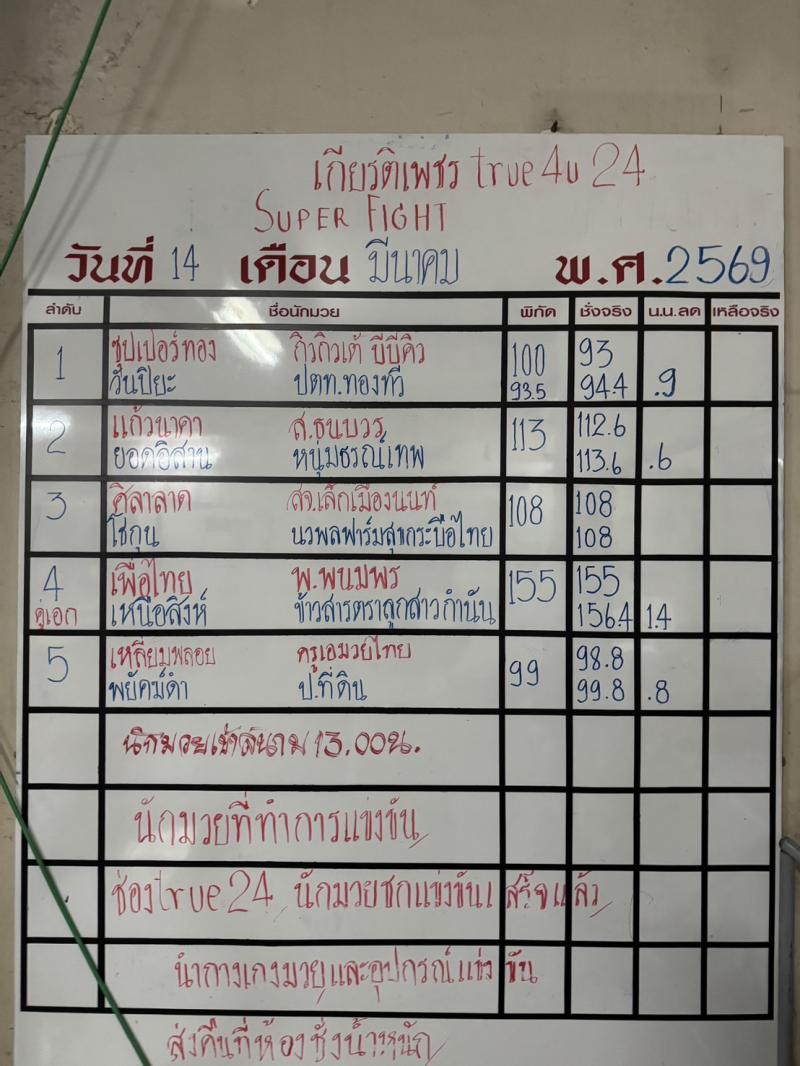 เกียรติเพชร true4u 24
SUPER FIGHT
วันที่ 14 เดือน มีนาคม พ.ศ.2569
ลำดับ ชื่อนักมวย พิกัด ชั่งจริง น.น.ลด เหลือจริง
1 ซุปเปอร์ทอง กิวกิวเต้ บีบีคิว 100 93
วันปิยะ ปตท.ทองทวี 93.5 94.4 .9
2 แก้วนาคา ส.ธนบวร 113 112.6
ยอดอีสาน หนุ่มธรณ์เทพ 113.6 .6
3 ศิลาลาด สจ.เล็กเมืองนนท์ 108 108
โชกุน นวพลฟาร์มสุขกระบือไทย 108
4 เพื่อไทย พ.พนมพร 155 155
คู่เอก เหนือสิงห์ ข้าวสารตราลูกสาวกำนัน 156.4 1.4
5 เหลี่ยมพลอย ครูเอมวยไทย 99 98.8
พยัคฆ์ดำ ป.ที่ดิน 99.8 .8
นักมวยเข้าสนาม 13.00น.
นักมวยที่ทำการแข่งขัน
ช่องtrue24 นักมวยชกแข่งขันเสร็จแล้ว
นำกางเกงมวยและอุปกรณ์แข่งขัน
ส่งคืนที่ห้องชั่งน้ำหนัก